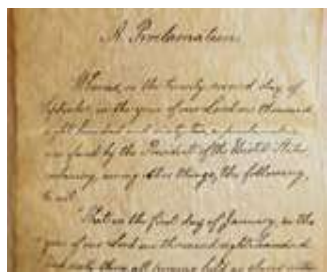 A Proclamation.
Whereas, on the twenty-second day of
September, in the year of our Lord one thousand
eight hundred and sixty-two, a proclamation
was issued by the President of the United States,
containing, among other things, the following,
to wit:
"That on the first day of January, in the
year of our Lord one thousand eight hundred
and sixty-three, all persons held as slaves within